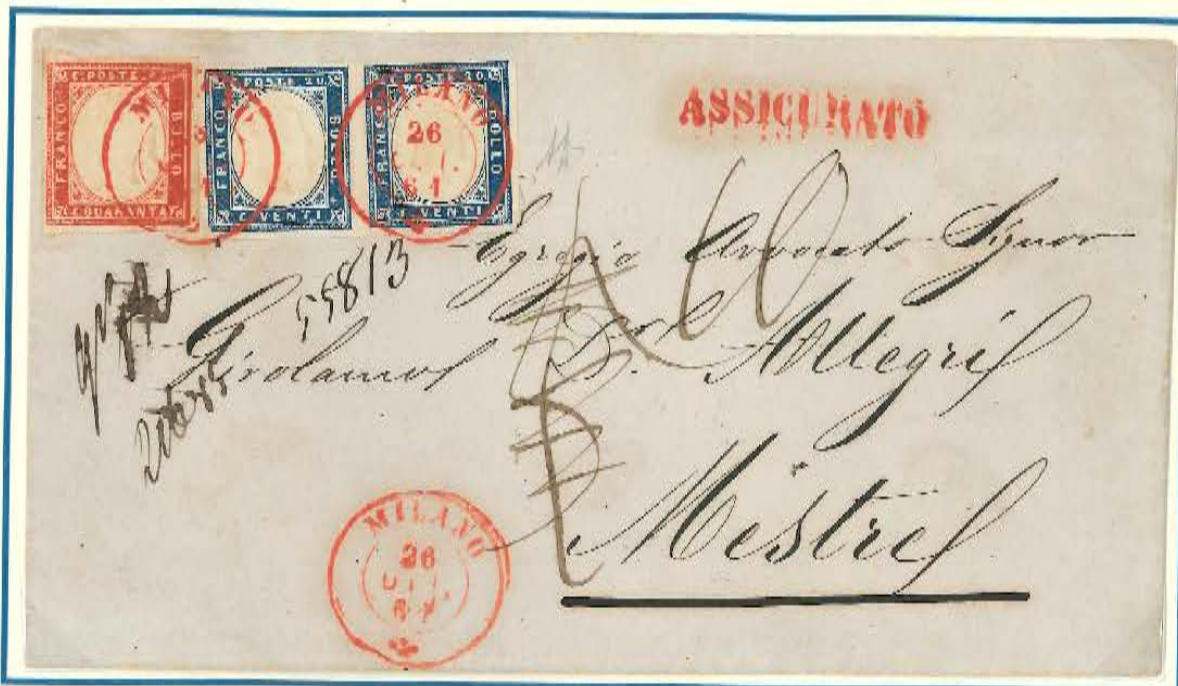 C. POSTE FRANCO BOLLO C. QUARANTA
C. POSTE 20 FRANCO BOLLO C. VENTI
C. POSTE 20 FRANCO BOLLO C. VENTI
MILANO 26 61
ASSICURATO
Egregio Avvocato Signor
55813
Girolamo Dr. Allegri
Mestre
MILANO
26
OTT.
61